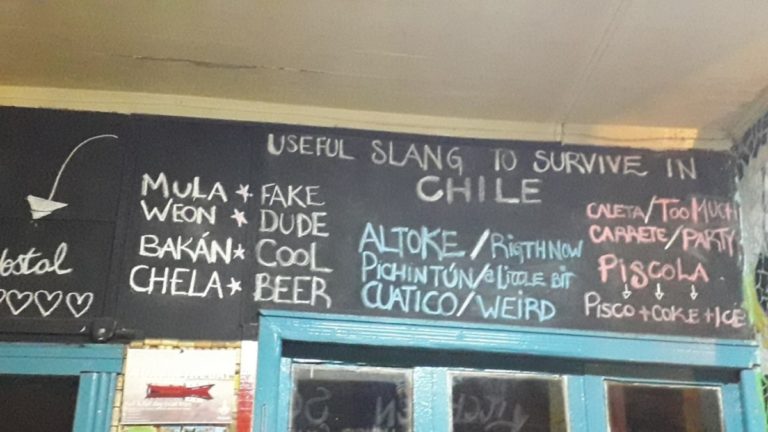 USEFUL SLANG TO SURVIVE IN
CHILE
MULA * FAKE
WEON * DUDE
BAKÁN * COOL
CHELA * BEER
ALTOKE / RIGTH NOW
PICHINTÚN / a LITTLE BIT
CUATICO / WEIRD
CALETA / TOO MUCH
CARRETE / PARTY
PISCOLA
PISCO + COKE + ICE